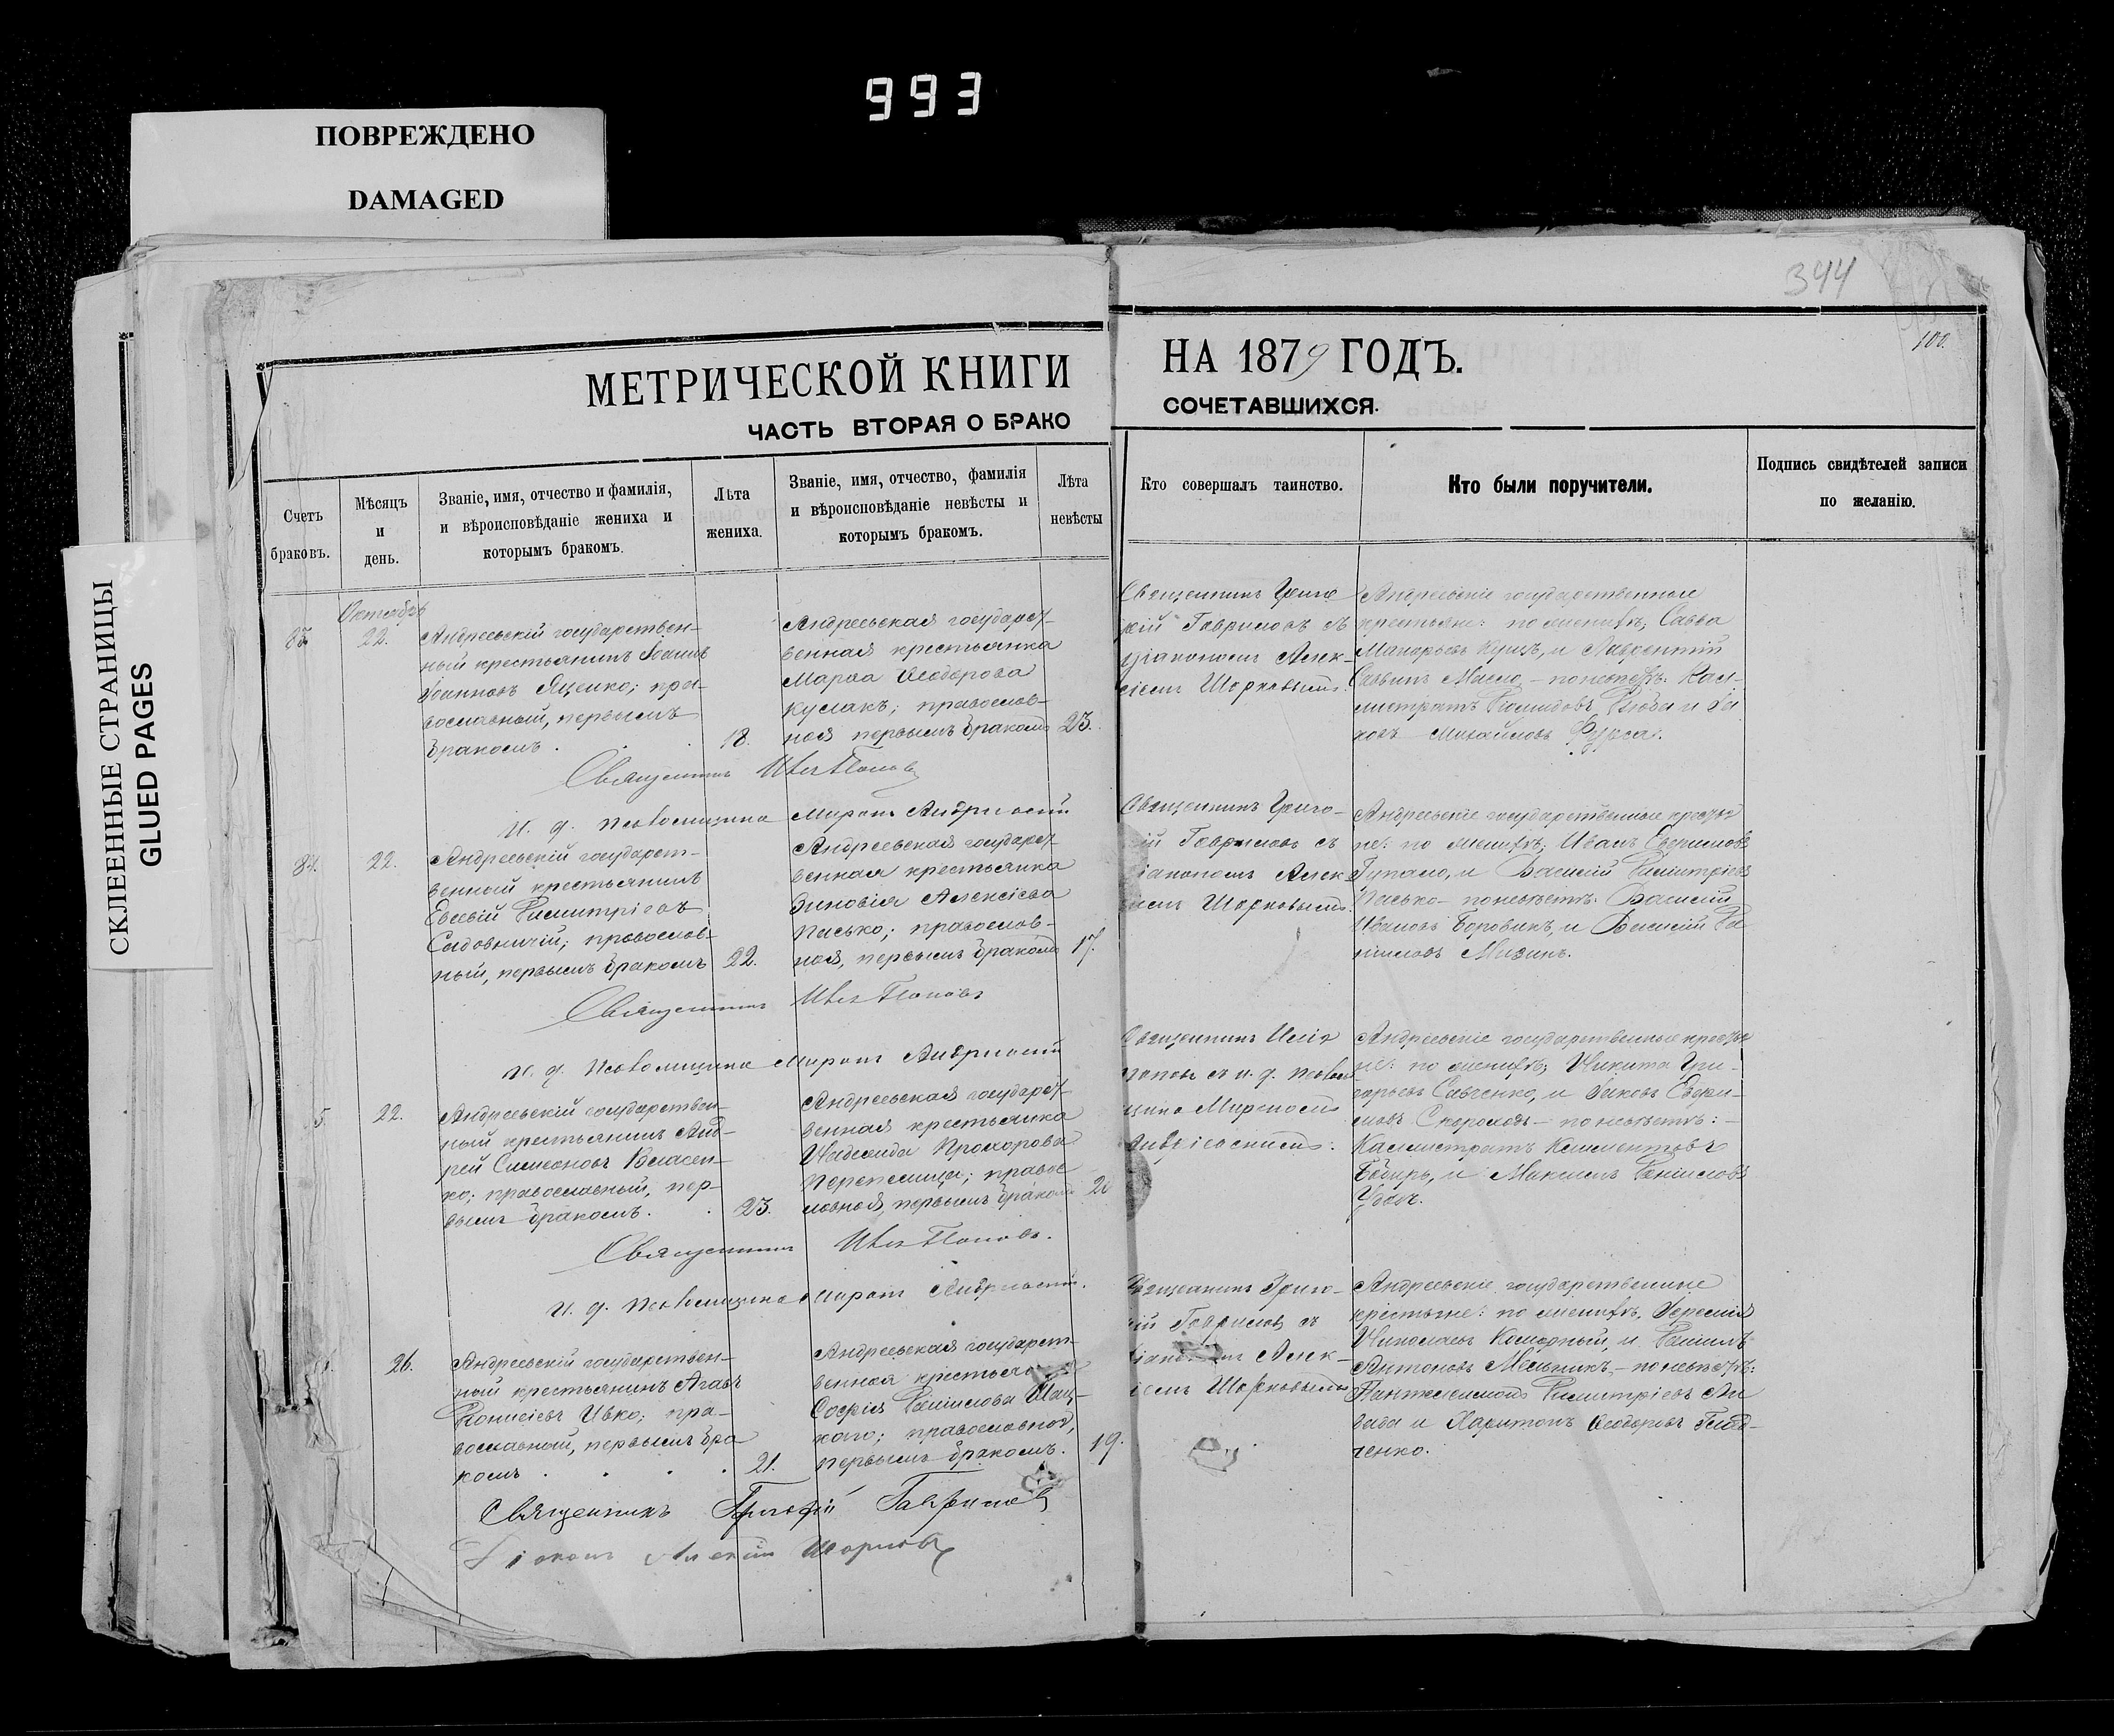 993
ПОВРЕЖДЕНО
DAMAGED
СКЛЕЕННЫЕ СТРАНИЦЫ
GLUED PAGES
344
100.
МЕТРИЧЕСКОЙ КНИГИ
ЧАСТЬ ВТОРАЯ О БРАКО
Счетъ
браковъ.
Мѣсяцъ
и
день.
Званіе, имя, отчество и фамилія,
и вѣроисповѣданіе жениха и
которымъ бракомъ.
Лѣта
жениха.
Званіе, имя, отчество, фамилія
и вѣроисповѣданіе невѣсты и
которымъ бракомъ.
Лѣта
невѣсты
НА 1879 ГОДЪ.
СОЧЕТАВШИХСЯ.
Кто совершалъ таинство.
Кто были поручители.
Подпись свидѣтелей записи
по желанію.
Октябрь
22.
Андреевскій государствен-
ный крестьянинъ Іоаннъ
Іоанновъ Яценко; пра-
вославный, первымъ
бракомъ.
18.
Андреевская государст-
венная крестьянка
Марѳа Ѳеодорова
Кулакъ; православ-
ная первымъ бракомъ
23.
Священникъ Григо
рій Гавриловъ съ
діакономъ Алек-
сіемъ Шорковымъ.
Андреевскіе государственные
крестьяне: по женихѣ; Савва
Макарьевъ Куцъ, и Лаврентій
Саввинъ Масло, – по невѣстѣ: Кал-
листратъ и Іа
ковъ Михайловъ Фурса.
Священникъ Поповъ
И. д. Псаломщика
84.
22.
Андреевскій государст-
венный крестьянинъ
Евсевій Димитріевъ
Садовничій; православ-
ный, первымъ бракомъ
22.
Андреевская государст-
венная крестьянка
Зиновія Алексіева
Пасько; православ-
ная, первымъ бракомъ
17.
Священникъ Григо-
рій Гавриловъ съ
діакономъ Алек
сіемъ Шорковымъ.
Андреевскіе государственные кресть
не: по женихѣ; Иванъ
и Василій Димитріевъ
Пасько – по невѣстѣ: Василій
Ивановъ Боровикъ, и Василій Да
ниловъ Мизинъ.
Священникъ Поповъ
И. д. Псаломщика
5.
22.
Андреевскій государствен-
ный крестьянинъ Анд-
рей Симеоновъ Власен-
ко; православный, пер-
вымъ бракомъ.
23.
Андреевская государст-
венная крестьянка
Надежда Прохорова
Перепелица; правос
лавная, первымъ бракомъ
20
Священникъ Илія
Поповъ съ и. д. Псалом
щика
Андреевскіе государственные кресть
не: по женихѣ; Никита Гри-
горьевъ Савченко, и Іаковъ
– по невѣстѣ: –
Каллистратъ Климентовъ
и Максимъ Даниловъ
Удодъ.
Священникъ Поповъ.
И. д. Псаломщика
26.
Андреевскій государствен-
ный крестьянинъ
Діонисіевъ Ивко; пра-
вославный, первымъ бра
комъ
21.
Андреевская государст-
венная крестьян
Софія Даніилова Шац-
каго; православная,
первымъ бракомъ.
19.
Священникъ Григо-
рій Гавриловъ съ
Алек-
сіемъ Шорковымъ
Андреевскіе государственные
крестьяне: по женихѣ, Іеремія
Николаевъ и Даніилъ
Антоновъ Мѣльникъ, – по невѣстѣ:
Пантелеимонъ Димитріевъ
и Харитонъ Ѳеодоровъ
ченко.
Священникъ Григорій Гавриловъ
Діаконъ Алексій Шорковъ